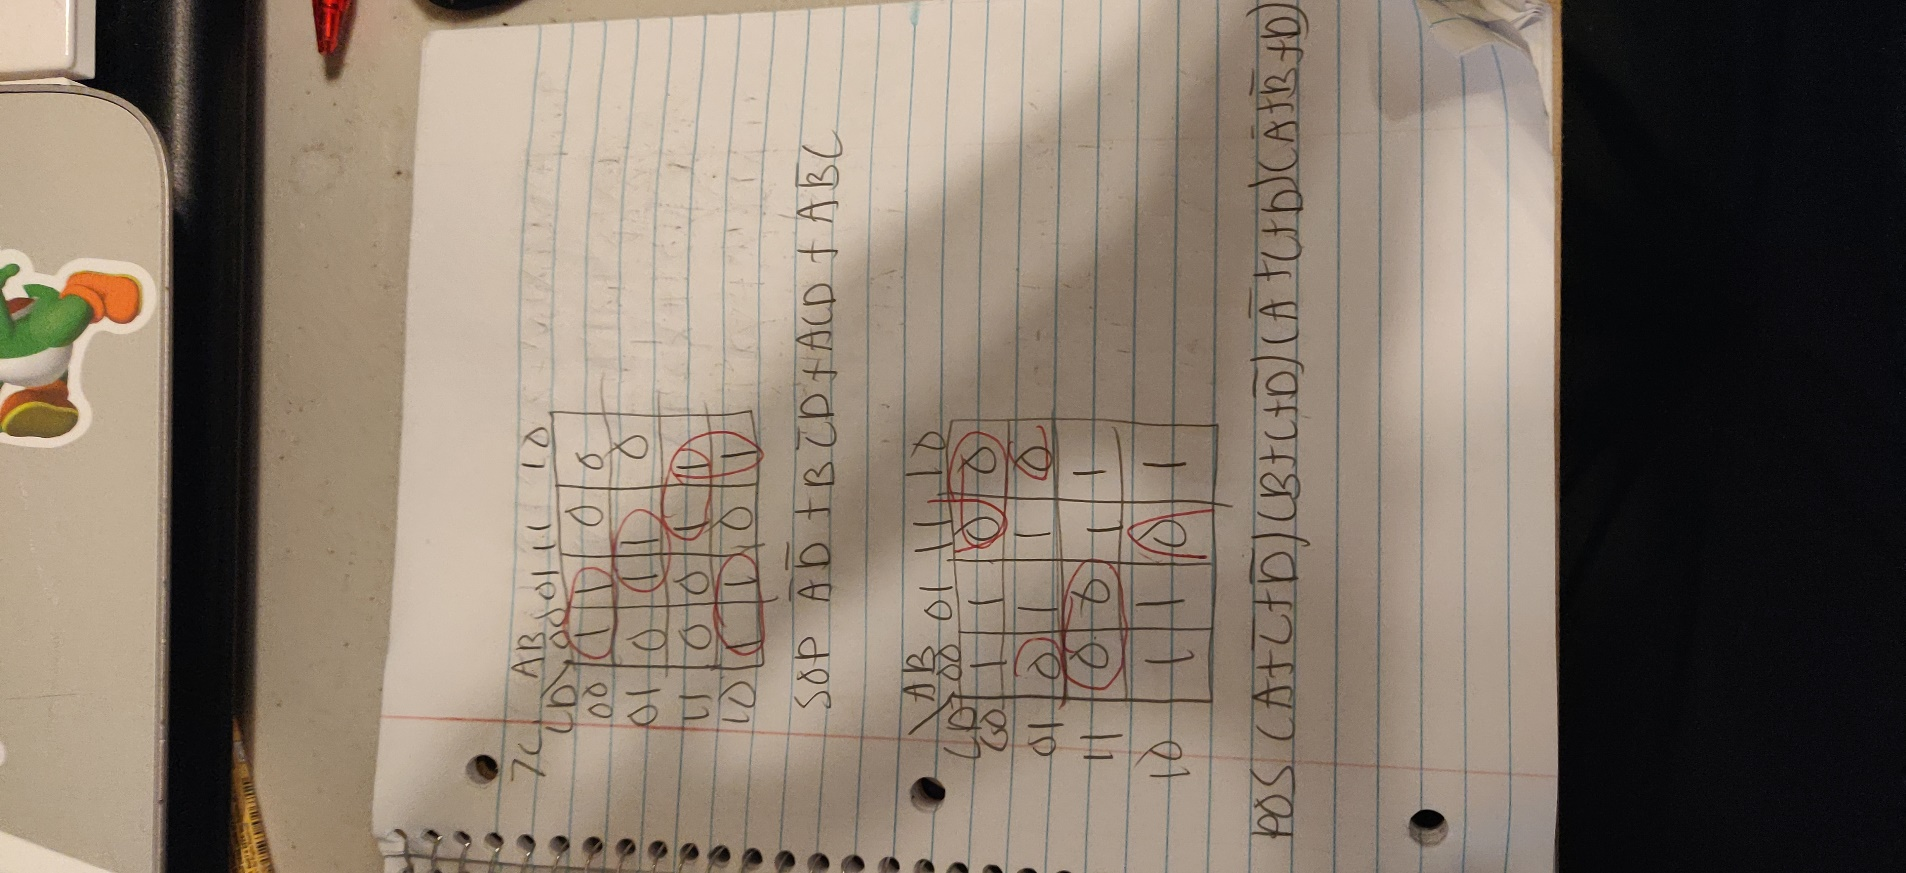 7C) AB
CD 00 01 11 10
00 1 1 0 0
01 0 1 1 0
11 0 0 1 1
10 1 1 0 1
SOP A̅D̅ + BC̅D + ACD + AB̅C
AB
CD 00 01 11 10
00 1 1 0 0
01 0 1 1 0
11 0 0 1 1
10 1 1 0 1
POS (A+C̅+D̅)(B+C+D̅)(A̅+C+D)(A̅+B̅+D)